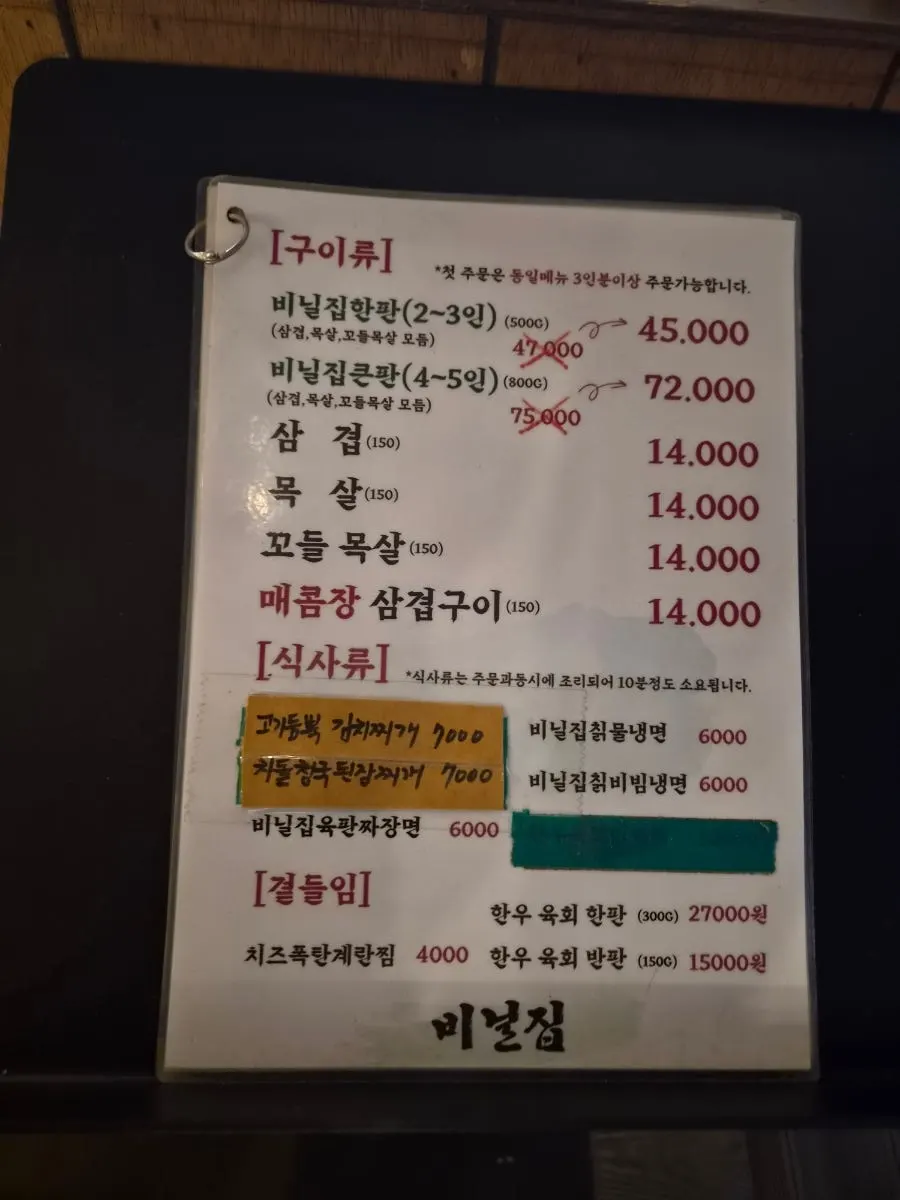 [구이류]
*첫 주문은 동일메뉴 3인분이상 주문가능합니다.
비닐집한판(2~3인) (500G) 47.000 45.000
(삼겹,목살,꼬들목살 모듬)
비닐집큰판(4~5인) (800G) 75.000 72.000
(삼겹,목살,꼬들목살 모듬)
삼 겹 (150) 14.000
목 살 (150) 14.000
꼬들 목살 (150) 14.000
매콤장 삼겹구이 (150) 14.000
[식사류]
*식사류는 주문과동시에 조리되어 10분정도 소요됩니다.
고기듬뿍 김치찌개 7000
차돌청국된장찌개 7000
비닐집칡물냉면 6000
비닐집칡비빔냉면 6000
비닐집육판짜장면 6000
[곁들임]
한우 육회 한판 (300G) 27000원
치즈폭탄계란찜 4000
한우 육회 반판 (150G) 15000원
비닐집